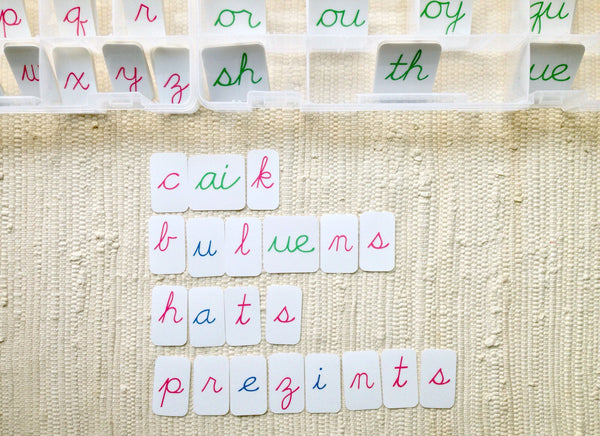 p q r or ou oy qu
w x y z sh th ue
caik
buluens
hats
prezints